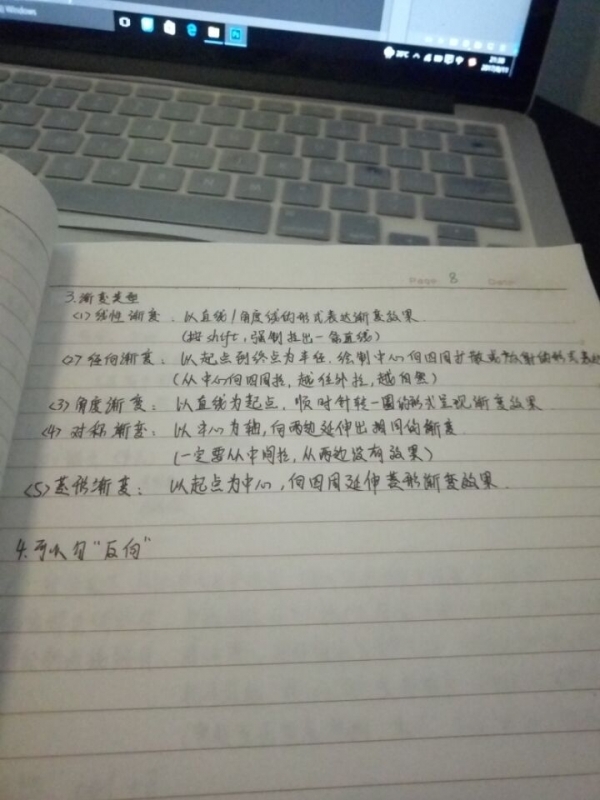 Windows
20℃
21:30
2017/8/11
Page 8 Date
3.渐变类型
<1>线性渐变:以直线/角度线的形式表达渐变效果
(按shift,强制拉出一条直线)
<2>径向渐变:以起点到终点为半径,绘制中心向四周扩散或放射的形式表
(从中心向四周拉,越往外拉,越自然)
<3>角度渐变:以直线为起点,顺时针转一圈的形式呈现渐变效果
<4>对称渐变:以中心为轴,向两边延伸出相同的渐变
(一定要从中间拉,从两边没有效果)
<5>菱形渐变:以起点为中心,向四周延伸菱形渐变效果.
4.可以勾"反向"